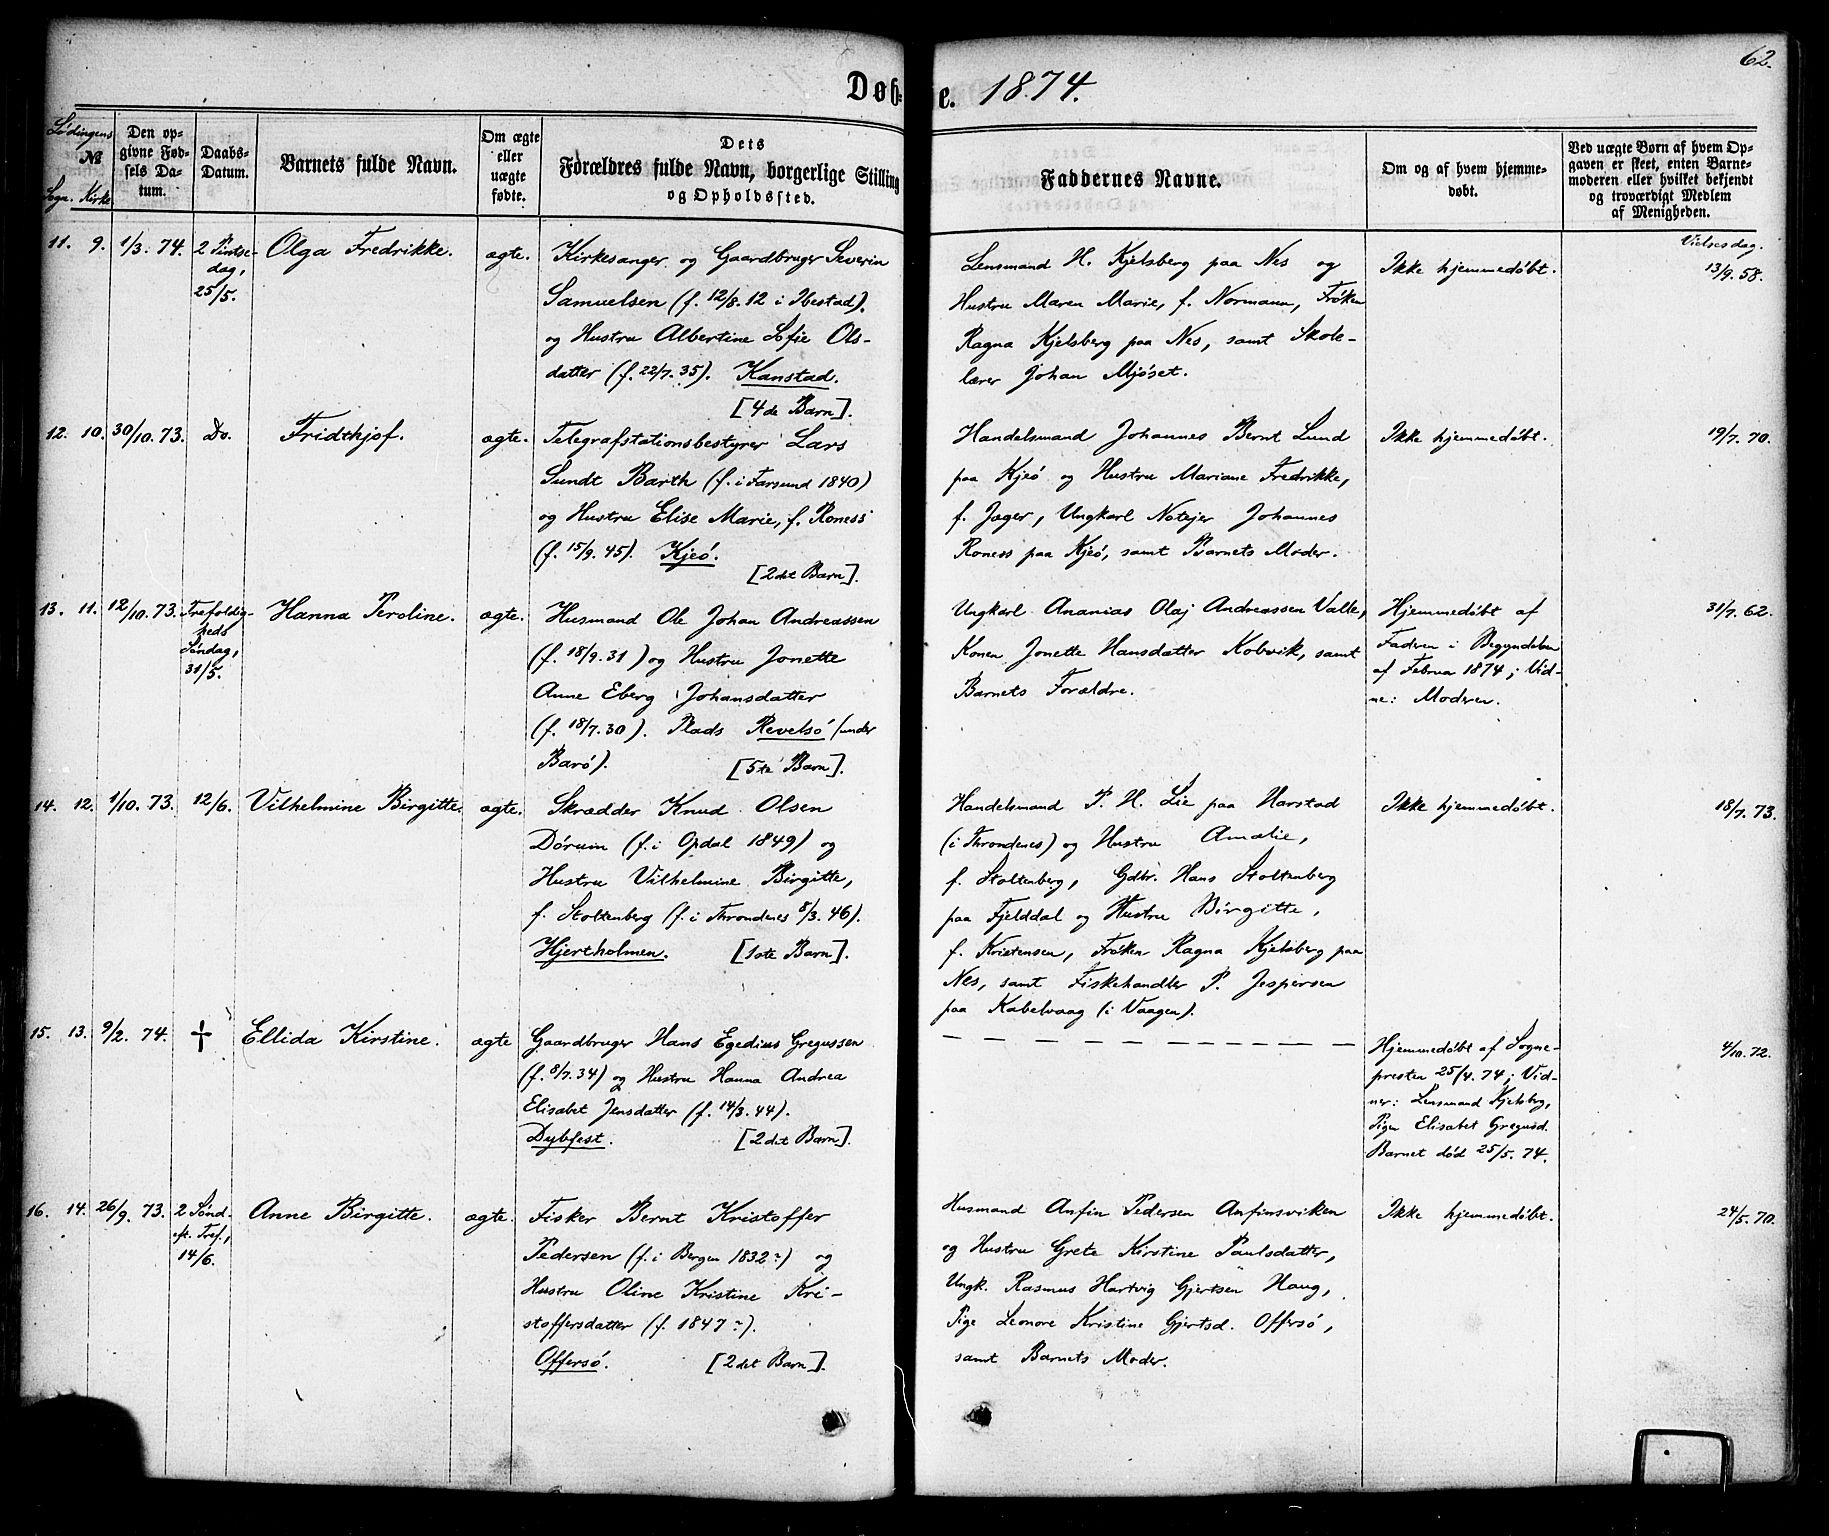 62.
Døb-
e. 1874.
Lødingens
№
Sogn. Kirke
Den op-
givne Fød-
sels Da-
tum.
Daabs-
Datum.
Barnets fulde Navn.
Om ægte
eller
uægte
fødte.
Dets
Forældres fulde Navn, borgerlige Stilling
og Opholdssted.
Faddernes Navne.
Om og af hvem hjemme-
døbt.
Ved uægte Børn af hvem Op-
gaven er skeet, enten Barne-
moderen eller hvilket bekjendt
og troværdigt Medlem
af Menigheden.
11. 9. 1/3. 74.
2 Pintse-
dag,
25/5.
Olga Fredrikke.
ægte.
Kirkesanger og Gaardbruger Severin
Samuelsen (f. 12/8. 12 i Ibestad).
og Hustru Albertine Sofie Ols-
datter (f. 22/7. 35). Kanstad.
[4de Barn].
Lensmand H. Kjelsberg paa Nes og
Hustru Maren Marie, f. Normann, Frøken
Ragna Kjelsberg paa Nes, samt Skole-
lærer Johan Mjøset.
Ikke hjemmedøbt.
Vielsesdag.
13/9. 58.
12. 10. 30/10. 73.
Do.
Fridthjof.
ægte.
Telegrafstationsbestyrer Lars
Sundt Barth (f. i Farsund 1840)
og Hustru Elise Marie, f. Roness
(f. 15/9. 45). Kjeø.
[2det Barn].
Handelsmand Johannes Bernt Lund
paa Kjeø og Hustru Mariane Fredrikke,
f. Jæger, Ungkarl Notejer Johannes
Roness paa Kjeø, samt Barnets Moder.
Ikke hjemmedøbt.
19/7. 70.
13. 11. 12/10. 73.
Trefoldig-
heds
Søndag,
31/5.
Hanna Peroline.
ægte.
Husmand Ole Johan Andreassen
(f. 18/9. 31) og Hustru Jonette
Anne Eberg Johansdatter
(f. 18/7. 30). Plads Revelsø (under
Barø).
[5te Barn].
Ungkarl Ananias Olaj Andreassen Valle,
Konen Jonette Hansdatter Kobvik, samt
Barnets Forældre.
Hjemmedøbt af
Faderen i Begyndelsen
af Februar 1874; Vid-
ne: Moderen.
31/7. 62.
14. 12. 1/10. 73.
12/6.
Vilhelmine Birgitte.
ægte.
Skrædder Knud Olsen
Dørum (f. i Opdal 1849) og
Hustru Vilhelmine Birgitte,
f. Stoltenberg (f. i Throndenes 8/3. 46).
Hjertholmen.
[1ste Barn].
Handelsmand P. H. Lie paa Harstad
(i Throndenes) og Hustru Amalie,
f. Stoltenberg, Gdbr. Hans Stoltenberg
paa Fjelddal og Hustru Birgitte,
f. Kristensen, Frøken Ragna Kjelsberg paa
Nes, samt Fiskehandler P. Jespersen
paa Kabelvaag (i Vaagen).
Ikke hjemmedøbt.
18/7. 73.
15. 13. 9/2. 74.
†
Ellida Kirstine.
ægte
Gaardbruger Hans Egedius Gregussen
(f. 8/7. 34) og Hustru Hanna Andrea
Elisabet Jensdatter (f. 14/3. 44).
Dybfest.
[2det Barn].
— — — — — — — — — — — —
Hjemmedøbt af Sogne-
presten 25/4. 74; Vid-
ner: Lensmand Kjelsberg,
Pigen Elisabet Gregusd.
Barnet død 25/5. 74.
4/10. 72.
16. 14. 26/9. 73.
2 Sønd.
eft. Tref.,
14/6.
Anne Birgitte.
ægte.
Fisker Bernt Kristoffer
Pedersen (f. i Bergen 1832?) og
Hustru Oline Kristine Kri-
stoffersdatter (f. 1847?).
Offersø.
[2det Barn].
Husmand Anfin Pedersen Anfinsviken
og Hustru Grete Kirstine Paulsdatter,
Ungk. Rasmus Hartvig Gjertsen Haug,
Pige Leonore Kristine Gjertsd. Offersø,
samt Barnets Moder.
Ikke hjemmedøbt.
24/5. 70.